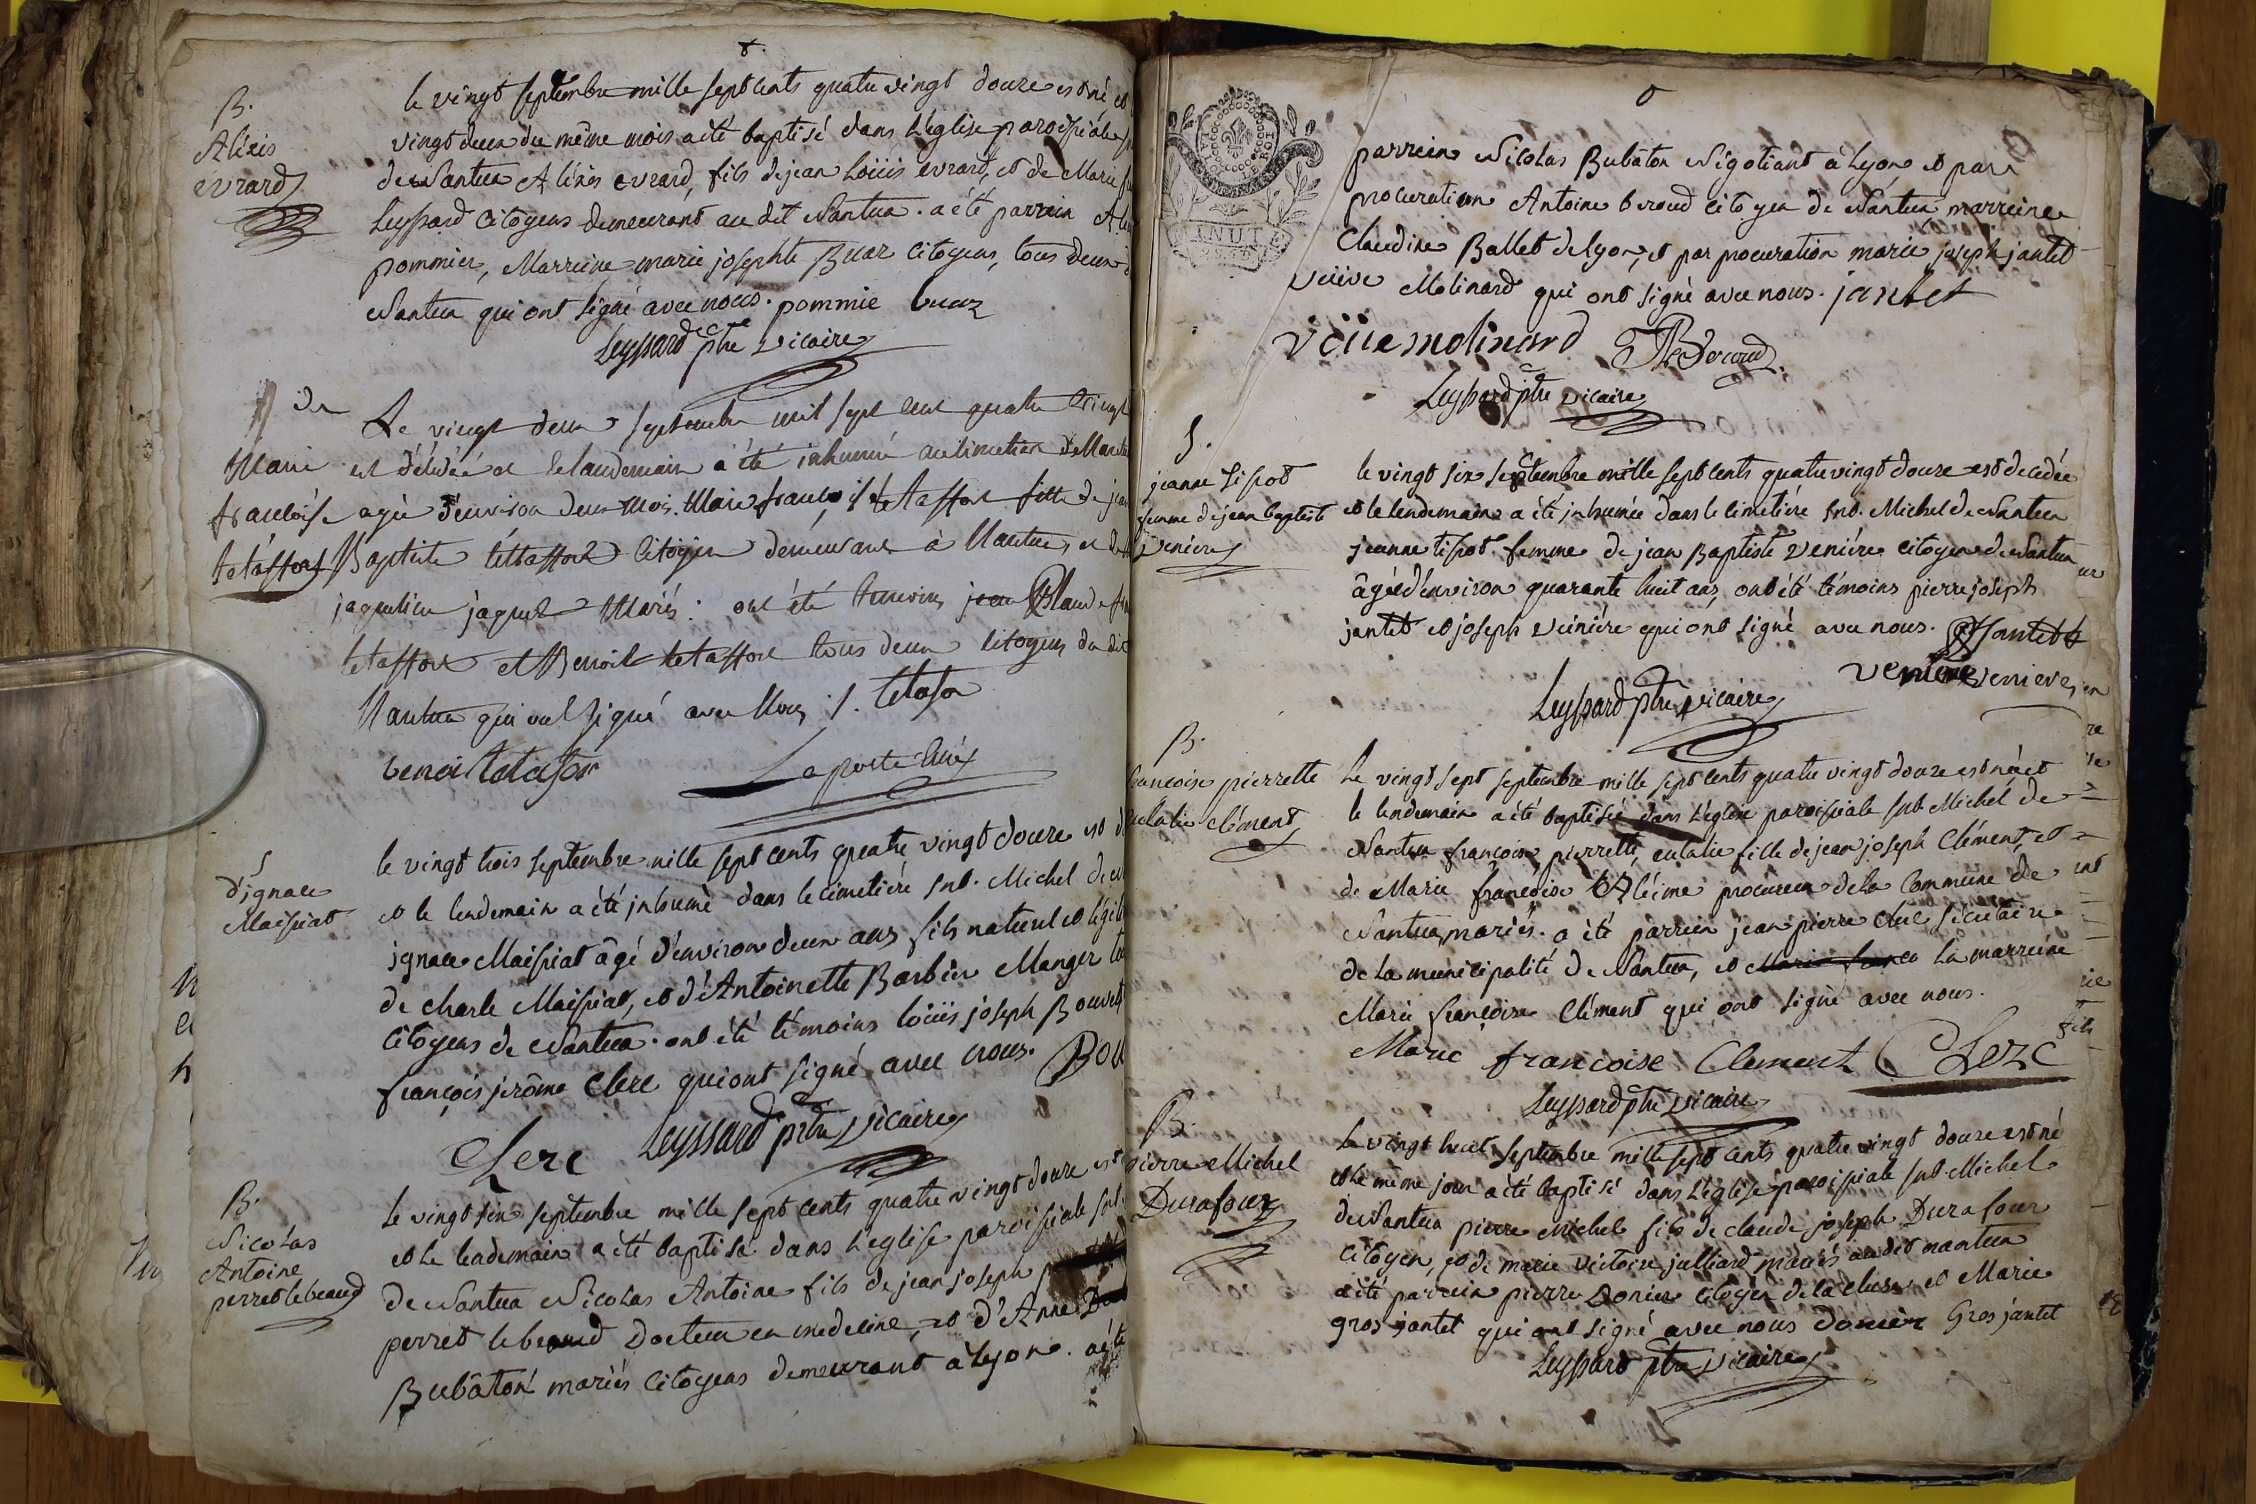 B.
Aléxis
évrard
le vingt septembre mille sept cents quatre vingt douze est né et
vingt deux du même mois a été baptisé dans l'église paroissiale
de Nantua Aléxis évrard, fils de jean Loüis évrard, et de Marie
Leyssard Citoyens demeurant au dit Nantua. a été parrain
pommier, Marreine marie josephte Buaz Citoyens, tous deux
Nantua qui ont signé avec nous. pommie buaz
Leyssard ptre vicaire
de
Marie
francoise
tetaffort
Le vingt deux septembre mil sept cent quatre vingt
est décédée et le landemain a été inhumé au cimetier de Nantua
agée d'environ deux mois. Marie francoise tetaffort fille de jean
Baptiste tettaffort Citoyen demeurant à Nantua, et de
jaqueline jaquet Mariés: ont été temoins Claude
tetaffort et Benoit tetaffort tous deux citoyens du dit
Nantua qui ont signé avec Nous. tetafor
benoi tetafor Laporte Curé
S
d'ignace
Maissiat
le vingt trois septembre mille sept cents quatre vingt douze est
et le lendemain a été inhumé dans le cimetiére snt. Michel de
ignace Maissiat âgé d'environ deux ans fils naturel et légit
de charle Maissiat, et d'Antoinette Barbier Manger
Citoyens de Nantua. ont été témoins loüis joseph Bouvet
françois jerôme Clerc qui ont signé avec nous. Bou
Clerc Leyssard ptre vicaire
B.
Nicolas
Antoine
perret lebeaud
le vingt six septembre mille sept cents quatre vingt douze est
et le lendemain a été baptisé dans l'église paroissiale snt.
de Nantua Nicolas Antoine fils de jean joseph
perret lebeaud Docteur en médecine, et d'Anne
Bubâton mariés Citoyens demeurant à Lyon. a été
parrein Nicolas Bubâton Négotiant à Lyon et par
procuration Antoine beroud citoyen de Nantua marreine
Claudine Ballet de lyon, et par procuration marie joseph jantet
veüve Molinard qui ont signé avec nous. jantet
veüve molinard Beroud
Leyssard ptre vicaire
S.
jeanne tissot
femme de jean baptiste
veniére
le vingt six septembre mille sept cents quatre vingt douze est decedée
et le lendemain a été inhumée dans le cimetiére snt. Michel de Nantua
jeanne tissot femme de jean Baptiste veniére citoyen de Nantua
âgée d'environ quarante huit ans, ont été témoins pierre joseph
jantet et joseph véniére qui ont signé avec nous. Jantet
veniere
Leyssard ptre vicaire
B.
francoise pierrette
eulalie clément
Le vingt sept septembre mille sept cents quatre vingt douze est née et
le lendemain a été baptisée dans l'église paroissiale snt. Michel de
Nantua francoise, pierrette, eulalie fille de jean joseph Clément, et
de Marie françoise Aléime procureur de la Commune de
Nantua, mariés. a été parrein jean pierre Clerc sécrétaire
de la municipalité de Nantua, et la marreine
Marie françoise Clément qui ont signé avec nous.
Marie francoise Clement Clerc
Leyssard ptre vicaire
B.
pierre Michel
Durafour
Le vingt huit septembre mille sept cents quatre vingt douze est né
et le même jour a été baptisé dans l'église paroissiale snt. Michel
de Nantua pierre Michel fils de claude joseph Durafour
Citoyen, et de marie victoire julliard mariés au dit nantua
a été parrein pierre Donier citoyen de la cluse et Marie
gros jantet qui ont signé avec nous donier Gros jantet
Leyssard ptre vicaire